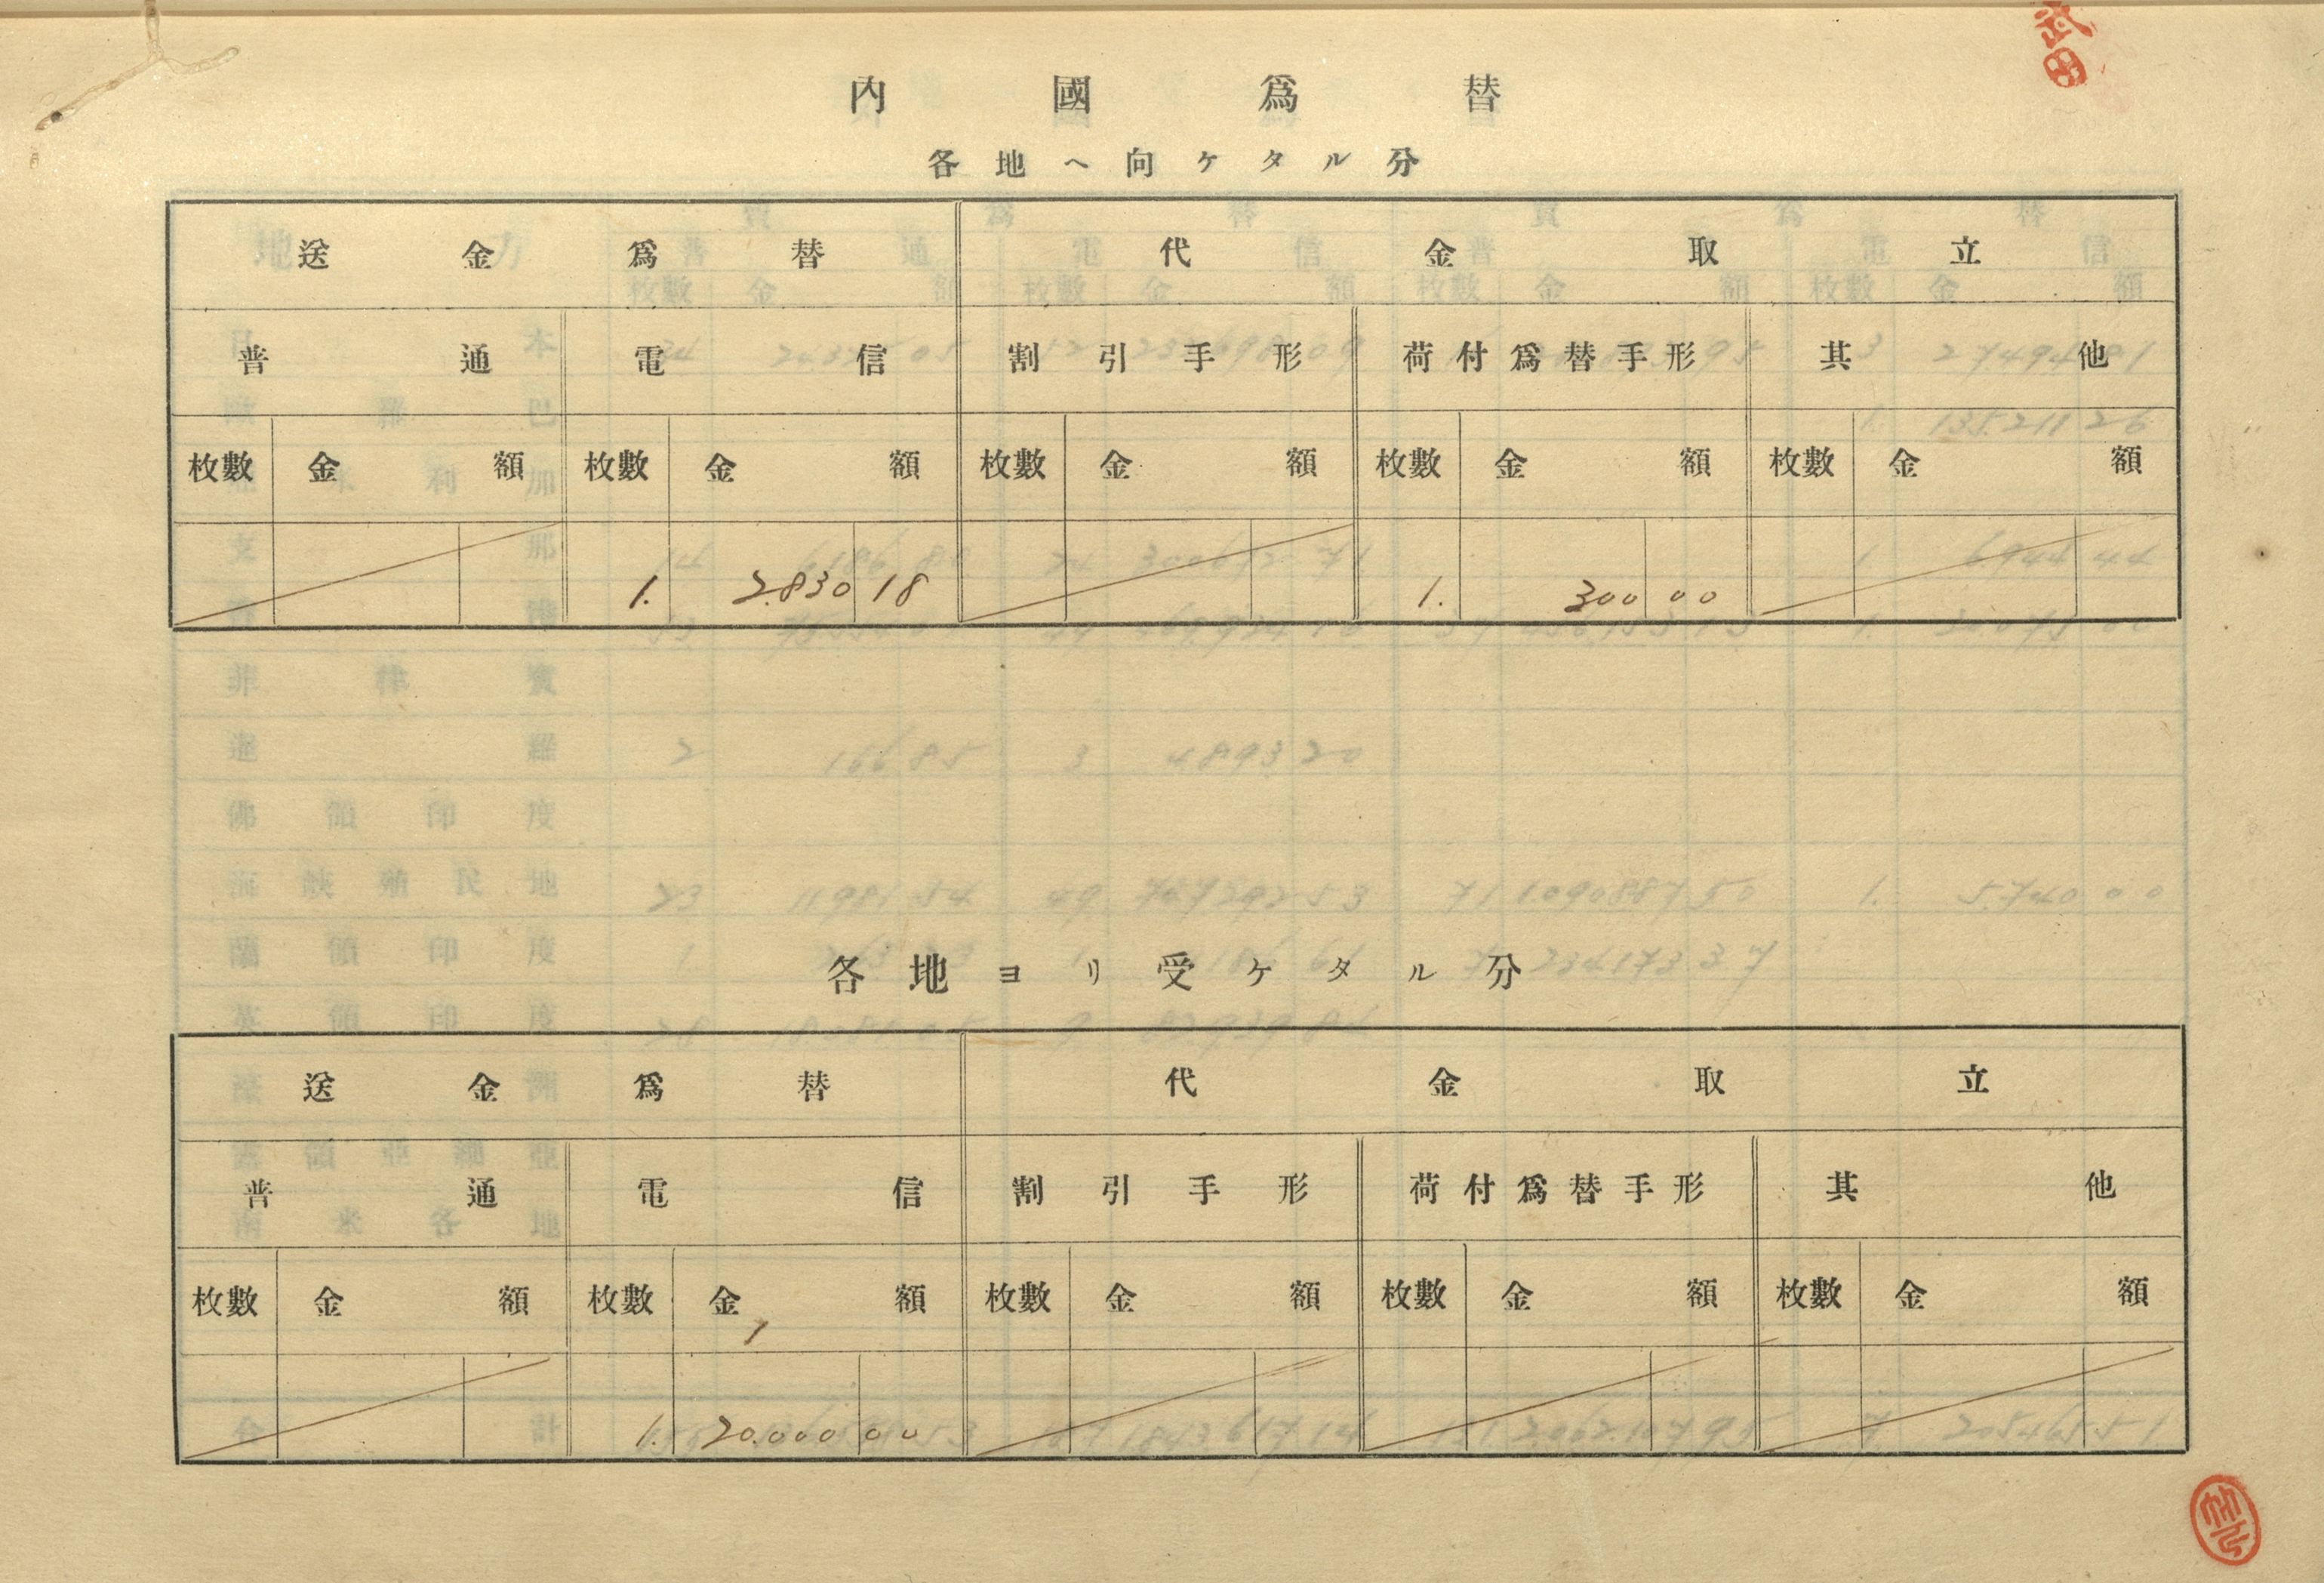 武田
內國爲替
各地ヘ向ケタル分
送金爲替 代金取立
普通 電信 割引手形 荷付爲替手形 其他
枚數 金額 枚數 金額 枚數 金額 枚數 金額 枚數 金額
1. 2.830 18 1. 300 00
各地ヨリ受ケタル分
送金爲替 代金取立
普通 電信 割引手形 荷付爲替手形 其他
枚數 金額 枚數 金額 枚數 金額 枚數 金額 枚數 金額
1
1. 20.000 00